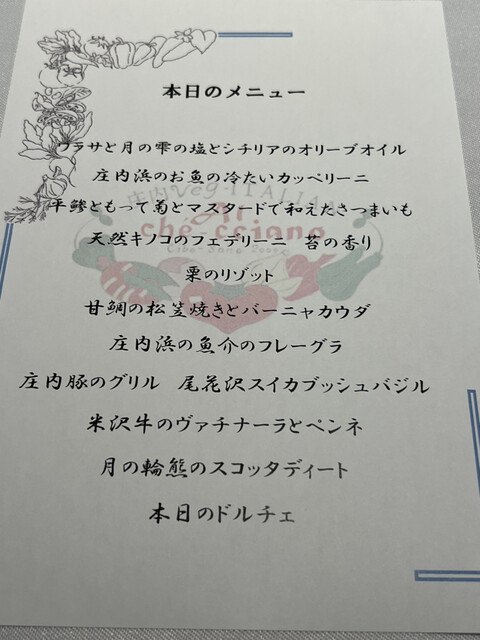 本日のメニュー
ワラサと月の雫の塩とシチリアのオリーブオイル
庄内浜のお魚の冷たいカッペリーニ
庄内Veg-ITALIAN
平鯵ともって菊とマスタードで和えたさつまいも
Al
chè-cciano
天然キノコのフェデリーニ 苔の香り
栗のリゾット
甘鯛の松笠焼きとバーニャカウダ
庄内浜の魚介のフレーグラ
庄内豚のグリル 尾花沢スイカブッシュバジル
米沢牛のヴァチナーラとペンネ
月の輪熊のスコッタディート
本日のドルチェ